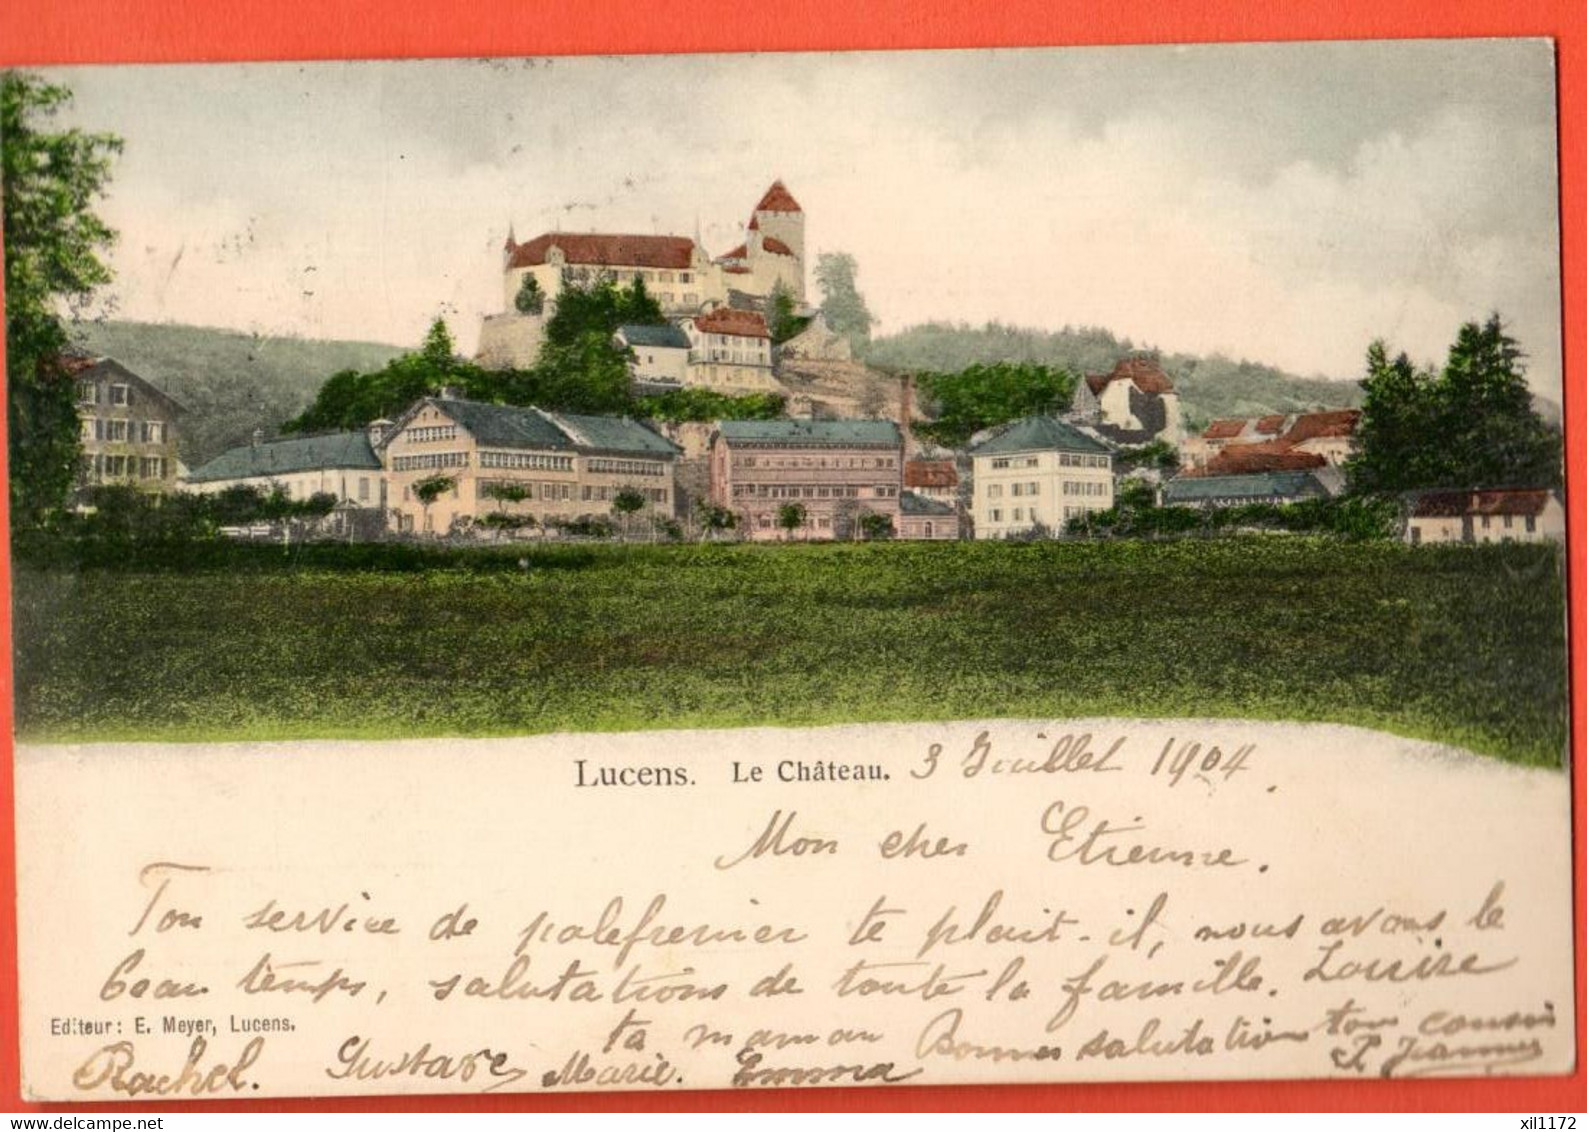 Lucens. Le Château. 3 Juillet 1904.
Mon cher Etienne.
Ton service de palefrenier te plait-il, nous avons le
beau temps, salutations de toute la famille. Louise
Editeur: E. Meyer, Lucens.
ta maman Bonnes salutation ton cousin
Rachel. Gustave Marie. Emma
delcampe.net
xil1172